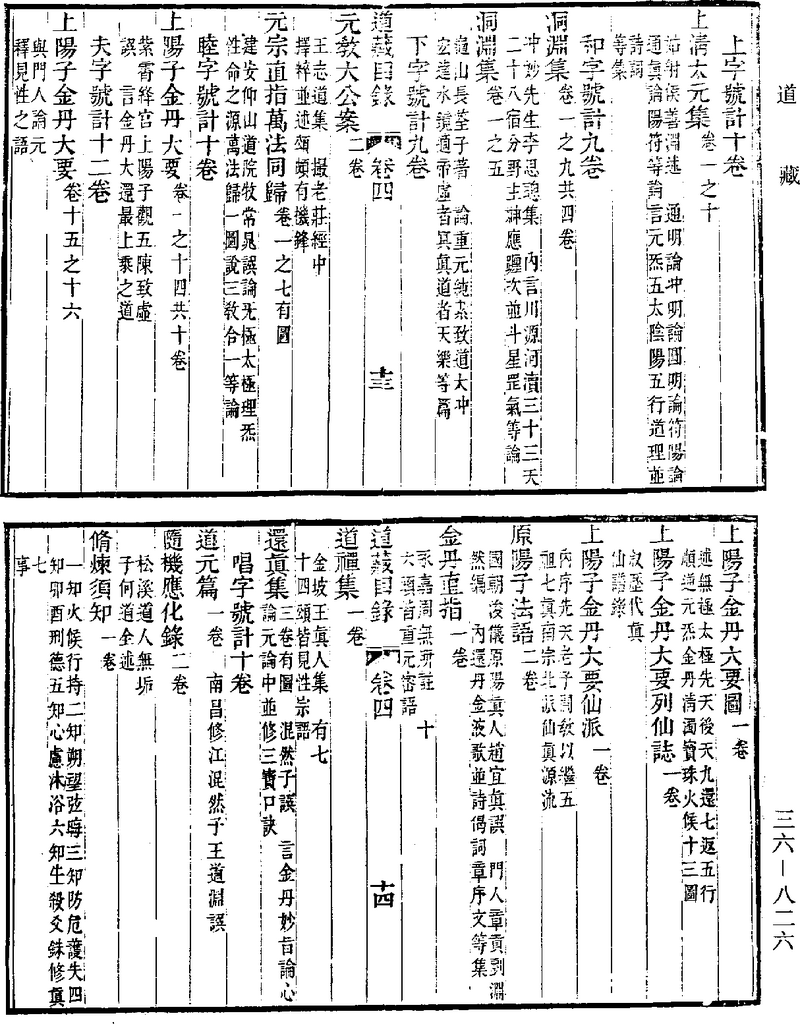 道藏
上字號計十卷
上淸太元集卷一之十
姑射侯善淵述　通明論冲明論圓明論符陽論
通眞論陽符等論言元炁五太陰陽五行道理並
詩詞
等集
和字號計九卷
洞淵集卷一之九共四卷
冲妙先生李思聰集　內言川源河瀆三十三天
二十八宿分野主神應躔次並斗星罡氣等論
洞淵集卷一之五
龜山長筌子著　論重元純素致道太冲
玄達水鏡適帝虛者冥眞道者天樂等篇
下字號計九卷
道藏目錄　卷四　十三
元敎大公案二卷
王志道集　撮老莊經中
擇粹並述頌頗有機鋒
元宗直指萬法同歸卷一之七有圖
建安仰山道院牧常晁誤論旡極太極理炁
性命之源萬法歸一圖說三敎合一等論
睦字號計十卷
上陽子金丹大要卷一之十四共十卷
紫霄絳宮上陽子觀五陳致虛
誤　言金丹大還最上乘之道
夫字號計十二卷
上陽子金丹大要卷十五之十六
與門人論元
釋見性之語
上陽子金丹大要圖一卷
述無極太極先天後天九還七返五行
顚道元炁金丹淸濁寶珠火候十三圖
上陽子金丹大要列仙誌一卷
叙歷代眞
仙譜錄
上陽子金丹大要仙派一卷
內序先天老子開敎以繼五
祖七眞南宗北派仙眞源流
原陽子法語二卷
國朝浚儀原陽眞人趙宜眞誤　門人章貢劉淵
然編　內還丹金液歌並詩偈詞章序文等集
金丹直指一卷
永嘉周無所註　十
六頌皆重元密語
道藏目錄　卷四　十四
道禪集一卷
金坡王眞人集　有七
十四頌皆見性宗語
還眞集三卷有圖　混然子誤　言金丹妙旨論心
論元論中並修三寶口訣
唱字號計十卷
道元篇一卷　南昌修江混然子王道淵誤
隨機應化錄二卷
松溪道人無垢
子何道全述
脩煉須知一卷
一知火候行持二知朔望弦晦三知防危護失四
知卯酉刑德五知心慮沐浴六知生殺爻銖修眞
七
事
三六—八二六